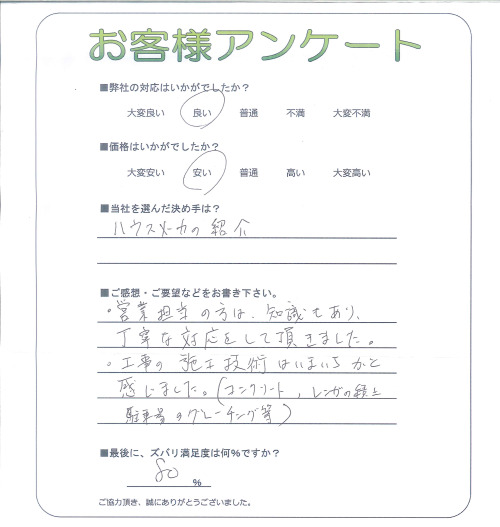 お客様アンケート
■弊社の対応はいかがでしたか？
大変良い　良い　普通　不満　大変不満
■価格はいかがでしたか？
大変安い　安い　普通　高い　大変高い
■当社を選んだ決め手は？
ハウスメーカの紹介
■ご感想・ご要望などをお書き下さい。
・営業担当の方は、知識もあり、
丁寧な対応をして頂きました。
・工事の施工技術はいまいちかと
感じました。（コンクリート，レンガの積上
駐車場のグレーチング等）
■最後に、ズバリ満足度は何%ですか？
80 %
ご協力頂き、誠にありがとうございました。